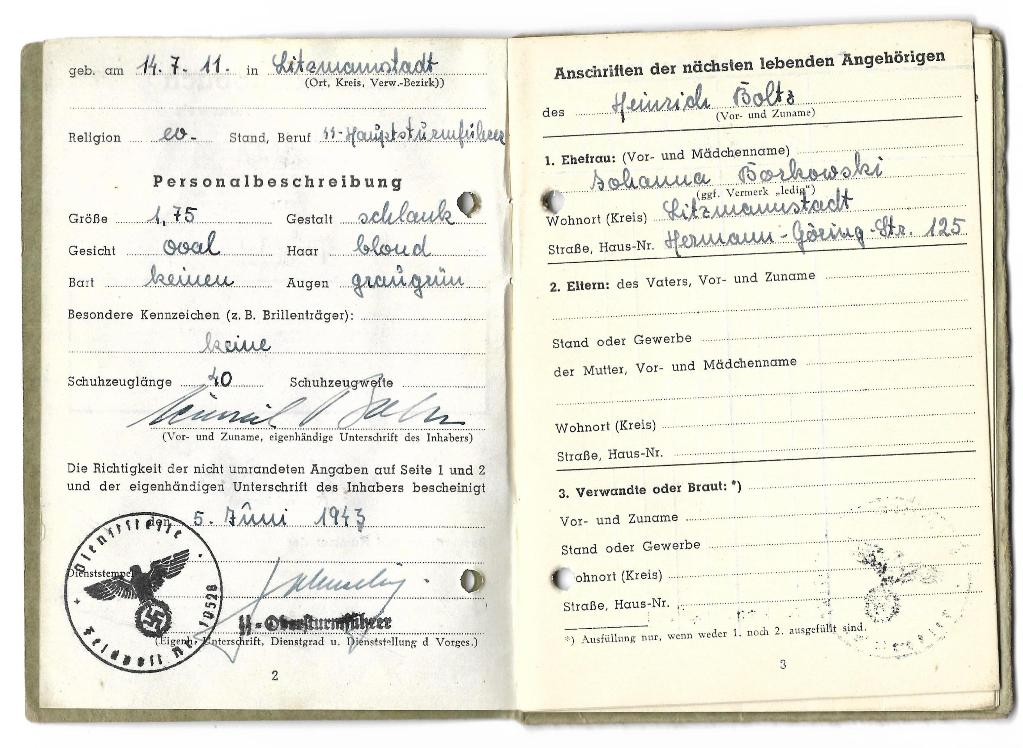 geb. am 14.7.11. in Litzmannstadt
(Ort, Kreis, Verw.-Bezirk))
Religion ev. Stand, Beruf SS-Hauptsturmführer
Personalbeschreibung
Größe 1,75 Gestalt schlank
Gesicht oval Haar blond
Bart keinen Augen graugrün
Besondere Kennzeichen (z. B. Brillenträger):
keine
Schuhzeuglänge 40 Schuhzeugweite
(Vor- und Zuname, eigenhändige Unterschrift des Inhabers)
Die Richtigkeit der nicht umrandeten Angaben auf Seite 1 und 2
und der eigenhändigen Unterschrift des Inhabers bescheinigt
den 5. Juni 1943
Dienststelle
Feldpost Nr. 10528
Dienststempel
SS-Obersturmführer
(Eigenh. Unterschrift, Dienstgrad u. Dienststellung d Vorges.)
2
Anschriften der nächsten lebenden Angehörigen
des Heinrich Boltz
(Vor- und Zuname)
1. Ehefrau: (Vor- und Mädchenname)
Johanna Borkowski
(ggf. Vermerk „ledig")
Wohnort (Kreis) Litzmannstadt
Straße, Haus-Nr. Hermann-Göring-Str. 125
2. Eltern: des Vaters, Vor- und Zuname
Stand oder Gewerbe
der Mutter, Vor- und Mädchenname
Wohnort (Kreis)
Straße, Haus-Nr.
3. Verwandte oder Braut: *)
Vor- und Zuname
Stand oder Gewerbe
ohnort (Kreis)
Straße, Haus-Nr.
*) Ausfüllung nur, wenn weder 1. noch 2. ausgefüllt sind.
3